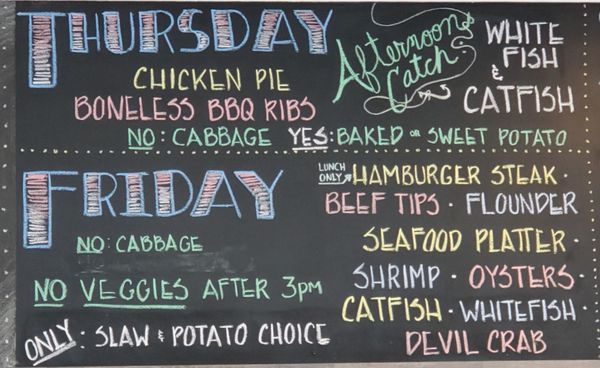 THURSDAY
CHICKEN PIE
BONELESS BBQ RIBS
Afternoon
Catch
WHITE
FISH
&
CATFISH
NO: CABBAGE YES: BAKED or SWEET POTATO
FRIDAY
NO: CABBAGE
NO VEGGIES AFTER 3PM
ONLY: SLAW & POTATO CHOICE
LUNCH
ONLY HAMBURGER STEAK ·
BEEF TIPS · FLOUNDER
SEAFOOD PLATTER ·
SHRIMP · OYSTERS ·
CATFISH · WHITEFISH ·
DEVIL CRAB